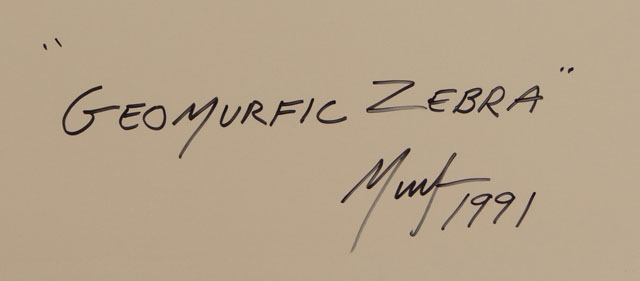 "GEOMURFIC ZEBRA"
Murf 1991